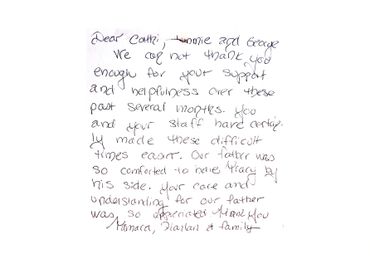 Dear Cathi, and George
We can not thank you
enough for your support
and helpfulness over these
past several months. You
and your staff have certain
ly made these difficult
times easier. Our father was
so comforted to have Tracy by
his side. Your care and
understanding for our father
was so appreciated thank you
& family